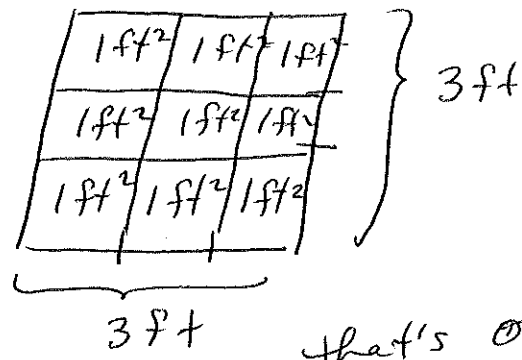 1ft² 1ft² 1ft²
1ft² 1ft² 1ft²
1ft² 1ft² 1ft²
3ft
3ft
that's